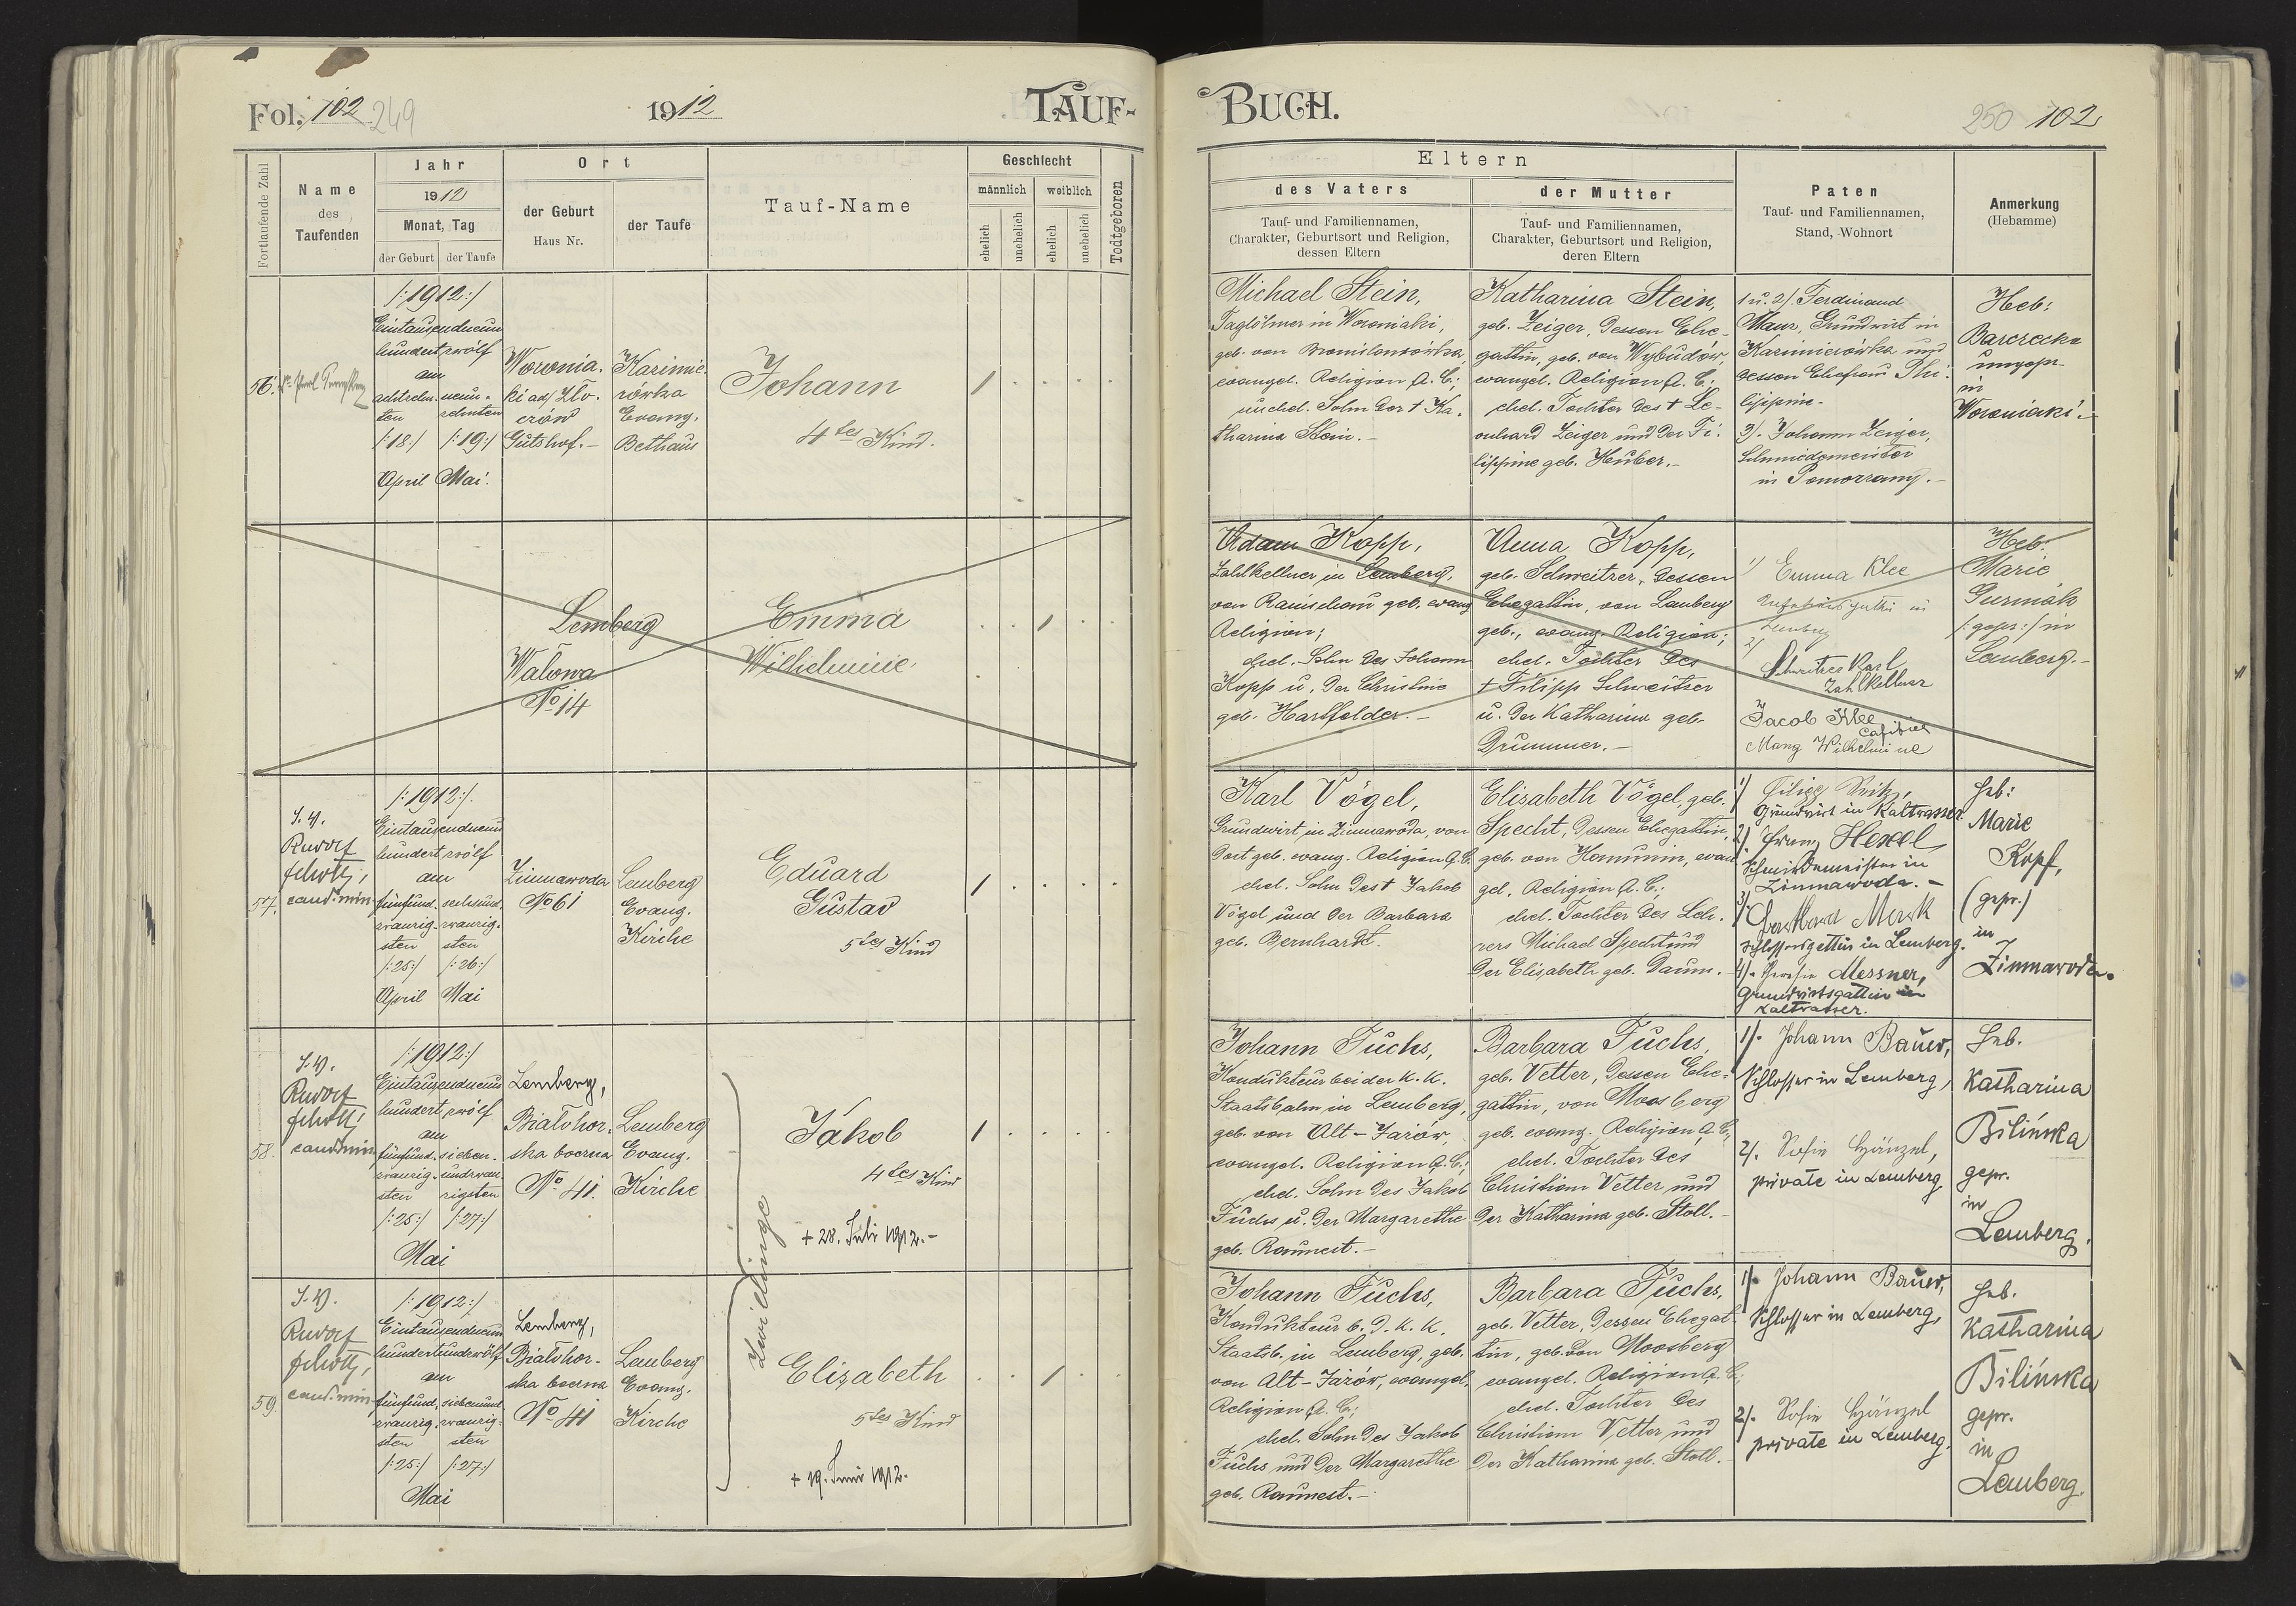 Fol. 102 249
1912
TAUF-
Fortlaufende Zahl
Name
des
Taufenden
Jahr
1912
Monat, Tag
der Geburt
der Taufe
Ort
der Geburt
Haus Nr.
der Taufe
Tauf-Name
Geschlecht
männlich
weiblich
ehelich
unehelich
ehelich
unehelich
Todtgeboren
56.
/:1912:/
Eintausendneun
hundertzwölf
am
achtzehn- neun-
ten zehnten
/:18:/ /:19:/
April Mai.
Woronia-
ki ad Zło-
czów
Gutshof.-
Kazimie-
rówka
Evang.
Bethaus
Johann
4tes Kind.
Lemberg
Wałowa
No 14
Emma
Wilhelmine.
57.
I. V.
Rudolf
Scholtz,
cand. min.
/:1912:/
Eintausendneun
hundertzwölf
am
fünfund- sechsund-
zwanzig- zwanzig-
sten sten
/:25:/ /:26:/
April Mai
Zimnawoda
No 61
Lemberg
Evang.
Kirche
Eduard
Gustav
5tes Kind
58.
I. V.
Rudolf
Scholtz,
cand. min.
/:1912:/
Eintausendneun
hundertzwölf
am
fünfund- sieben-
zwanzig- undzwan-
sten zigsten
/:25:/ /:27:/
Mai
Lemberg,
Białohor-
ska boczna
No 41.
Lemberg
Evang.
Kirche
Zwillinge
Jakob
4tes Kind
+ 28. Juli 1912.-
59.
I. V.
Rudolf
Scholtz,
cand. min.
/:1912:/
Eintausendneun
hundertundzwölf
am
fünfund- siebenund-
zwanzig- zwanzig-
sten sten
/:25:/ /:27:/
Mai
Lemberg,
Białohor-
ska boczna
No 41
Lemberg
Evang.
Kirche
Elisabeth
5tes Kind
+ 19. Juni 1912.
BUCH.
250 102
Eltern
des Vaters
Tauf- und Familiennamen,
Charakter, Geburtsort und Religion,
dessen Eltern
der Mutter
Tauf- und Familiennamen,
Charakter, Geburtsort und Religion,
deren Eltern
Paten
Tauf- und Familiennamen,
Stand, Wohnort
Anmerkung
(Hebamme)
Michael Stein,
Taglöhner in Woroniaki,
geb. von
evangel. Religion A. C.;
unehel. Sohn der † Ka-
tharina Stein.-
Katharina Stein,
geb. Zeiger, dessen Ehe-
gattin, geb. von Wybudów,
evangel. Religion A. C.;
ehel. Tochter des † Le-
onhard Zeiger und der Fi-
lippine geb. Huber.-
1 u. 2/. Ferdinand
Maur, Grundwirt in
Kazimierówka und
dessen Ehefrau Phi-
lippine.
3/. Johann Zeiger,
Schmiedemeister
in Pomorzany.-
Heb:
Barczecka
ungepr.
in
Woroniaki.-
Adam Kopp,
Zahlkellner in Lemberg,
von geb. evang
Religion;
ehel. Sohn des Johann
Kopp u. der Christine
geb. Hartfelder.-
Anna Kopp,
geb. Schweitzer, dessen
Ehegattin, von Lemberg
geb., evang. Religion;
ehel. Tochter des
† Filipp Schweitzer
u. der Katharina geb.
Drummer.-
1/ Emma Klee
in
Lemberg
2/
Schweitzer Karl
Zahlkellner
Jacob Klee
Mang Wilhelmine
Heb:
Marie
Gurniak
/:gepr:/ in
Lemberg.-
Karl Vögel,
Grundwirt in Zimnawoda, von
dort geb. evang. Religion A. C.
ehel. Sohn des † Jakob
Vögel und der Barbara
geb. Bernhardt.
Elisabeth Vögel, geb.
Specht, dessen Ehegattin,
geb. von Hanunin, evan-
gel. Religion A. C.;
ehel. Tochter des Leh-
rers Michael Specht und
der Elisabeth geb. Daum.-
1/
Grundwirt in Kaltwasser.
2/. Franz Hexel
Schmiedemeister in
Zimnawoda.-
3/.
Schlossersgattin in Lemberg.
4/. Messner,
Grundwirtsgattin in
Kaltwasser.
Heb:
Marie
Kopf,
(gepr.)
in
Zimnawoda.
Johann Fuchs,
Kondukteur bei der K. K.
Staatsbahn in Lemberg,
geb. von Alt-Jazów,
evangel. Religion A. C.;
ehel. Sohn des Jakob
Fuchs u. der Margarethe
geb. Raumest.-
Barbara Fuchs,
geb. Vetter, dessen Ehe-
gattin, von Moosberg
geb. evang. Religion A. C.,
ehel. Tochter des
Christian Vetter und
der Katharina geb. Stoll.-
1/. Johann Bauer,
Schlosser in Lemberg,
2/. Sofie Hänzel,
private in Lemberg
Heb.
Katharina
Bilińska
gepr.
in
Lemberg.
Johann Fuchs,
Kondukteur b. d. K. K.
Staatsb. in Lemberg, geb.
von Alt-Jazów, evangel.
Religion A. C.;
ehel. Sohn des Jakob
Fuchs und der Margarethe
geb. Raumest.-
Barbara Fuchs,
geb. Vetter, dessen Ehegat-
tin, geb. von Moosberg
evangel. Religion A. C.;
ehel. Tochter des
Christian Vetter und
der Katharina geb. Stoll.
1/. Johann Bauer,
Schlosser in Lemberg,
2/. Sofie Hänzel
private in Lemberg.
Heb.
Katharina
Bilińska
gepr.
in
Lemberg.